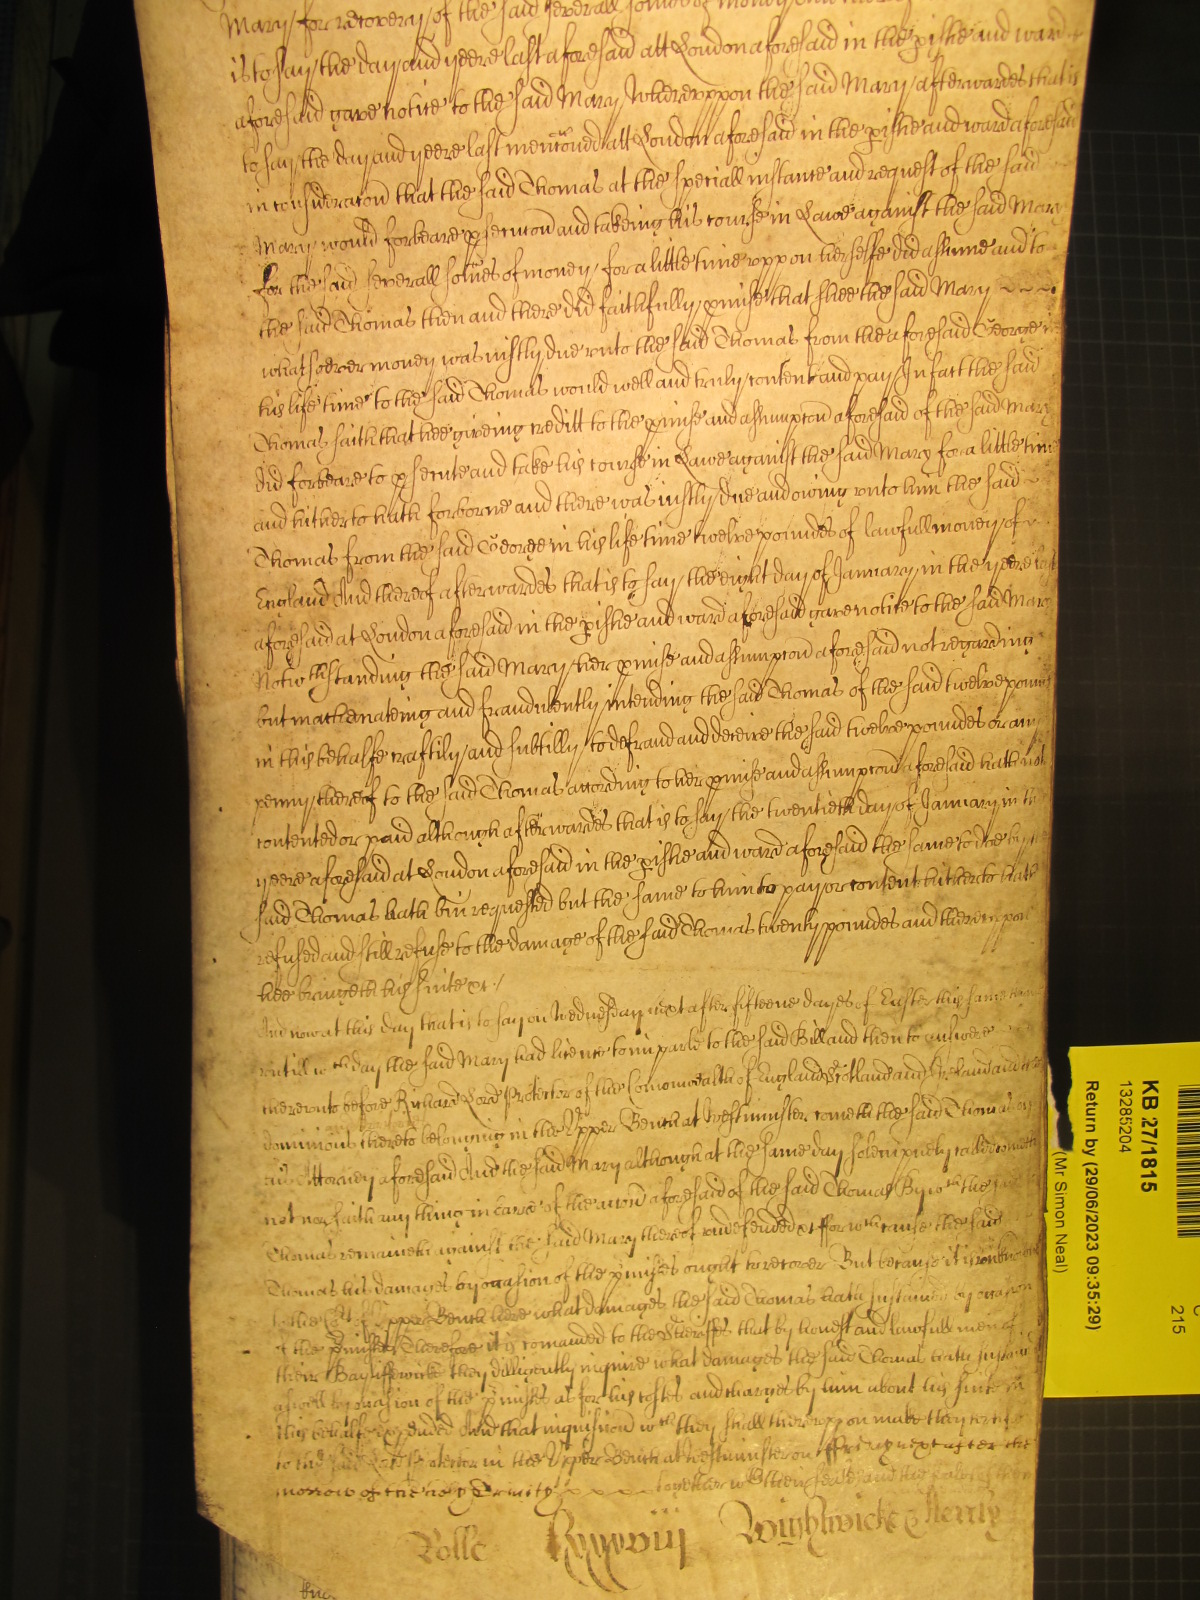 Mary for recovery of the said severall somes of money
is to say the day and yeere last aforesaid att London aforesaid in the pishe and ward
aforesaid gave notice to the said Mary Whereuppon the said Mary afterwardes that is
to say the day and yeere last menconed att London aforesaid in the pishe and ward aforesaid
in consideracon that the said Thomas at the speciall instance and request of the said
Mary would forbeare psecucon and takeing his course in Lawe against the said Mary
for the said severall somes of money for a little time uppon herselfe did assume and to
the said Thomas then and there did faithfully pmise that shee the said Mary
whatsoever money was iustly due unto the said Thomas from the aforesaid George in
his life time to the said Thomas would well and truly content and pay In fact the said
Thomas saith that hee giveing creditt to the pmise and assumpcon aforesaid of the said Mary
did forbeare to psecute and take his course in Lawe against the said Mary for a little time
and hitherto hath forborne and there was iustly due and owing unto him the said
Thomas from the said George in his life time twelve poundes of lawfull money of
England And thereof afterwardes that is to say the eight day of January in the yeere last
aforesaid at London aforesaid in the pishe and ward aforesaid gave notice to the said Mary
Notwthstanding the said Mary her pmise and assumpcon aforesaid not regarding
but machinateing and fraudulently intending the said Thomas of the said twelve poundes
in this behalfe craftily and subtilly to defraud and deceive the said twelve poundes or any
penny thereof to the said Thomas according to her pmise and assumpcon aforesaid hath not
contented or paid although afterwardes that is to say the twentieth day of January in the
yeere aforesaid at London aforesaid in the pishe and ward aforesaid the same to doe by
said Thomas hath bin requested but the same to him to pay or content hitherto hath
refused and still refuse to the damage of the said Thomas twenty poundes and thereuppon
hee bringeth his suite &c.
And now at this day that is to say on Wednesday next after fifteene dayes of Easter this same terme
untill wch day the said Mary had licence to imparle to the said Bill and then to answere
thereunto before Richard Lord Protector of the Comonwealth of England Scotland and Ireland and the
dominions thereto belonging in the Upper Bench at Westminster cometh the said Thomas by
his Attorney aforesaid And the said Mary although at the same day solempnely called cometh
not nor saith any thing in barre of the accon aforesaid of the said Thomas By wch the said
Thomas remaineth against the said Mary thereof undefended &c ffor wch cause the said
Thomas his damages by occasion of the pmises ought to recover But because it is unknowne
to the Court of Upper Bench here what damages the said Thomas hath sustained by occasion
of the pmisses Therefore it is comanded to the Sheriffes that by honest and lawfull men of
their Bayliffewicke they dilligently inquire what damages the said Thomas hath sustained
aswell by occasion of the pmisses as for his costes and charges by him about his suite in
this behalfe expended And that inquisicon wch they shall thereuppon make they certifie
to the said Lord Protector in the Upper Bench at Westminster on ffriday next after the
morrow of the holy Trinity together wth their seales and the seales of them
Rolle Wightwicke Henly
KB 27/1815
13285204
Return by (29/06/2023 09:35:29)
(Mr Simon Neal)
215